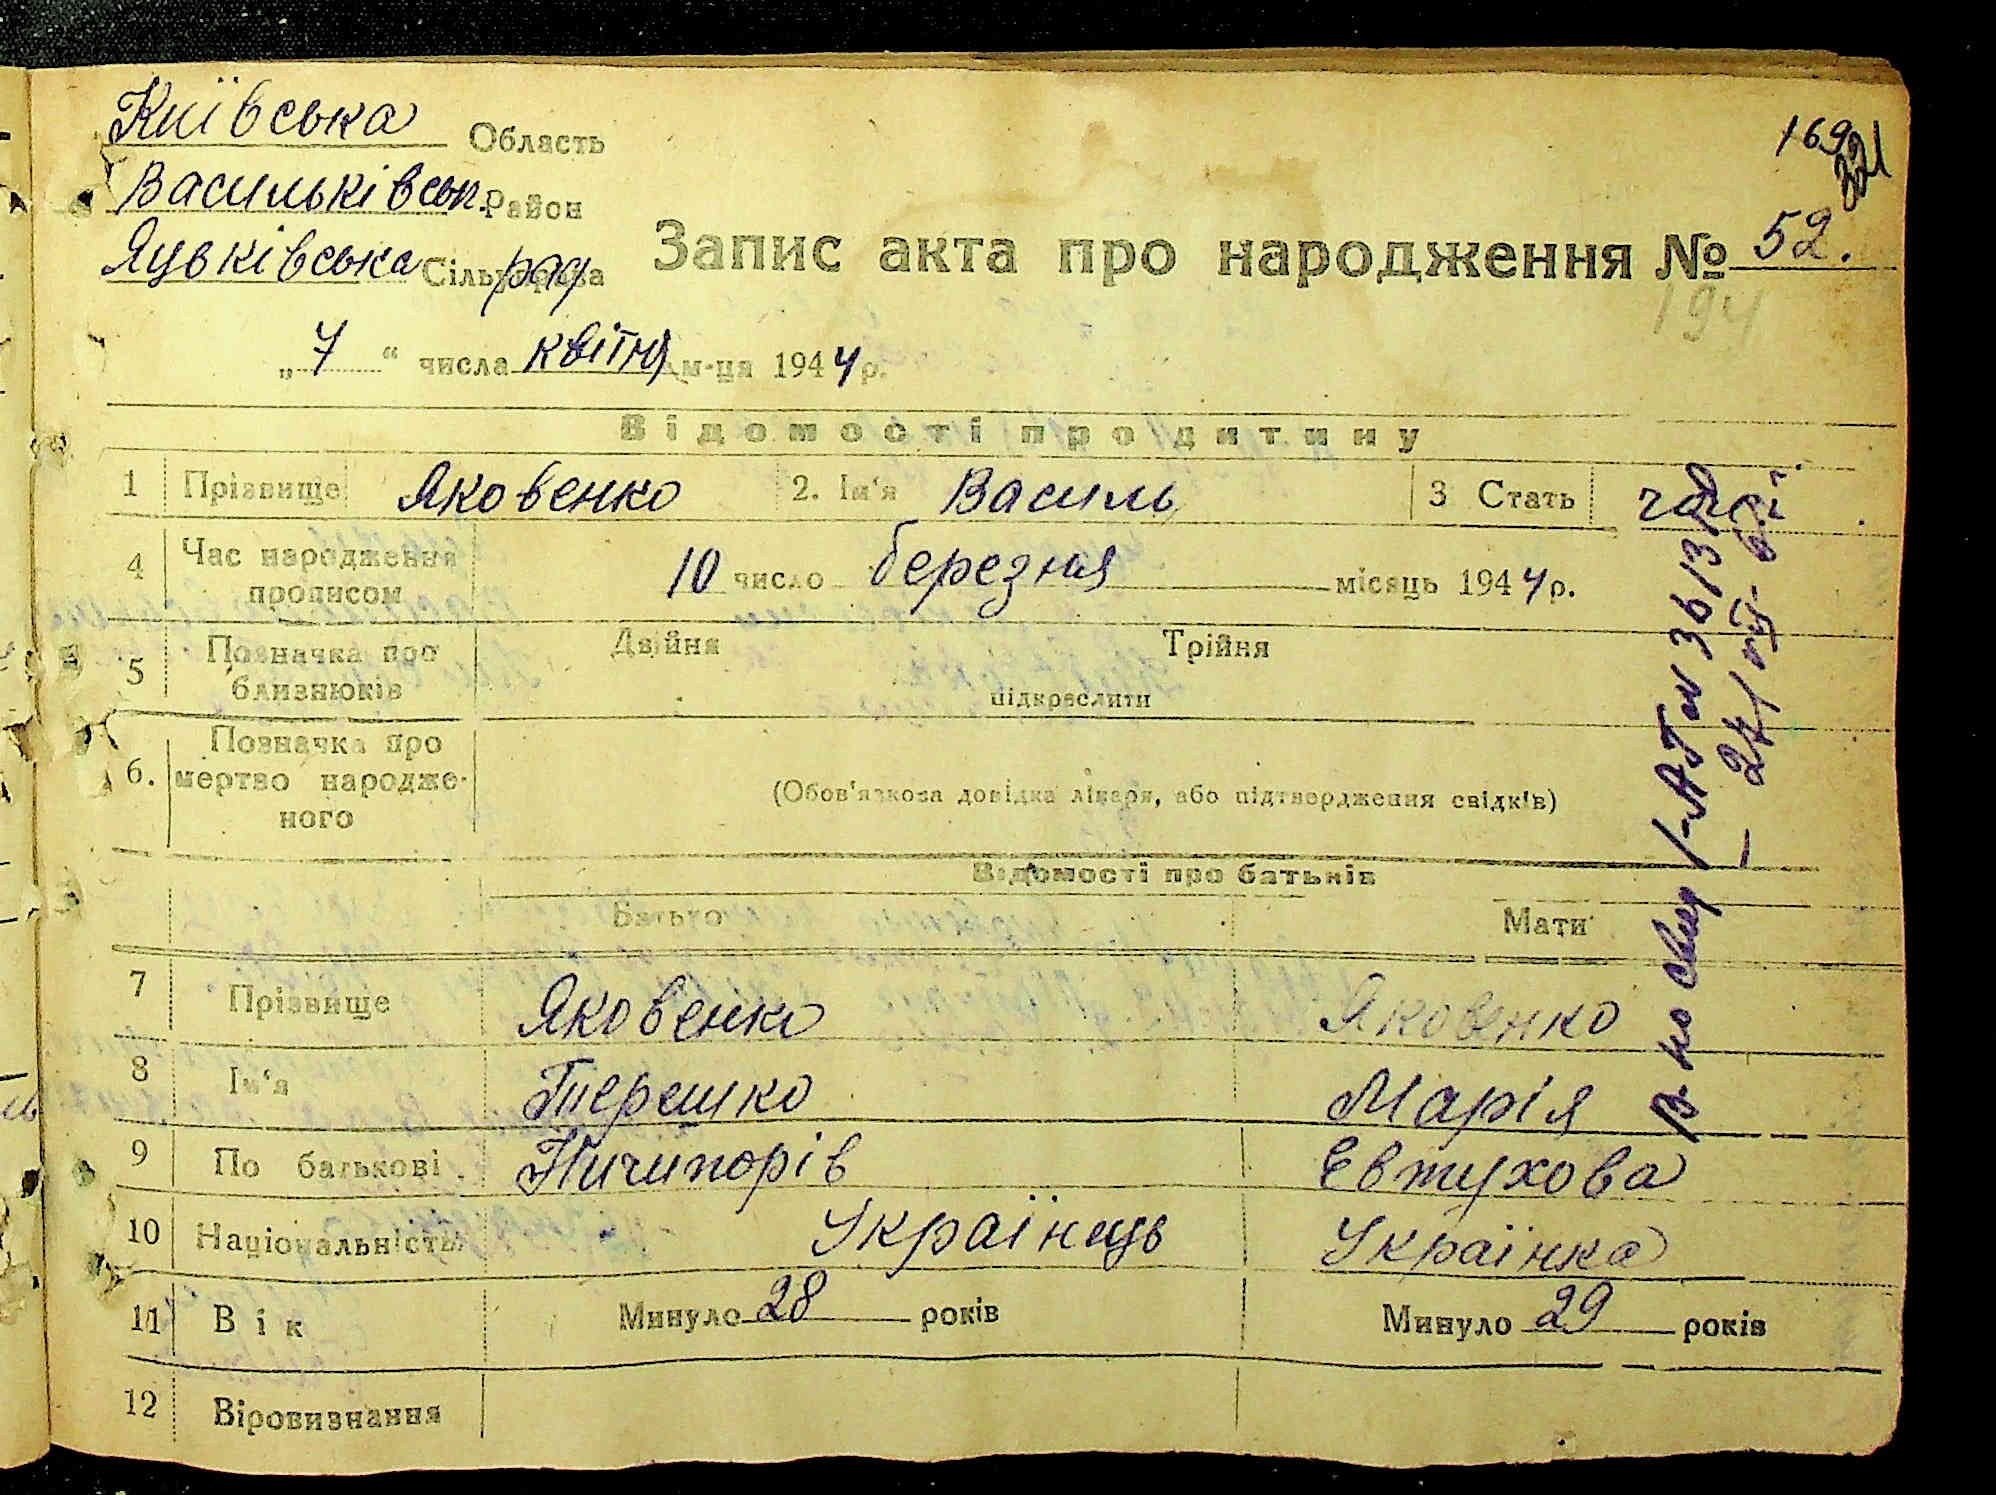 Київська Область
169
321
Васильківськ. Район
Яцьківська Сільуправа рад
Запис акта про народження № 52.
194
„7“ числа квітня м-ця 1944 р.
Відомості про дитину
1 Прізвище Яковенко 2. Ім'я Василь 3 Стать чол.
4 Час народження прописом 10 число березня місяць 1944 р.
5 Позначка про близнюків Двійня Трійня
підкреслити
6. Позначка про мертво народженого
(Обов'язкова довідка лікаря, або підтвердження свідків)
Відомості про батьків
Батько Мати
7 Прізвище Яковенко Яковенко
8 Ім'я Терешко Марія
9 По батькові Ничипорів Євтухова
10 Національність Українець Українка
11 Вік Минуло 28 років Минуло 29 років
12 Віровизнання
I-АГ № 3613